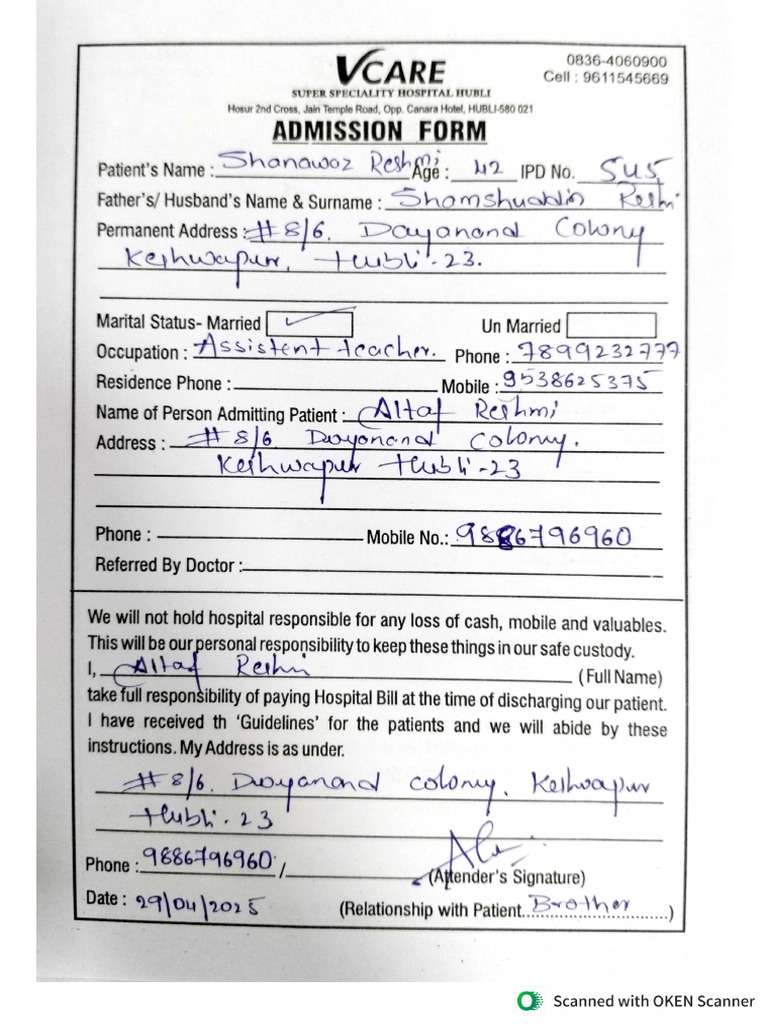 VCARE
0836-4060900
Cell : 9611545669
SUPER SPECIALITY HOSPITAL HUBLI
Hosur 2nd Cross, Jain Temple Road, Opp. Canara Hotel, HUBLI-580 021
ADMISSION FORM
Patient's Name : Shanawaz Reshmi Age : 42 IPD No. 545
Father's/ Husband's Name & Surname : Shamshuddin Reshmi
Permanent Address : #8/6. Dayanand Colony
Keshwapur, Hubli-23.
Marital Status- Married ✓ Un Married
Occupation : Assistent teacher. Phone : 7899232777
Residence Phone : Mobile : 9538625375
Name of Person Admitting Patient : Altaf Reshmi
Address : #8/6 Dayanand Colony.
Keshwapur Hubli-23
Phone : Mobile No.: 9886796960
Referred By Doctor :
We will not hold hospital responsible for any loss of cash, mobile and valuables.
This will be our personal responsibility to keep these things in our safe custody.
I, Altaf Reshmi (Full Name)
take full responsibility of paying Hospital Bill at the time of discharging our patient.
I have received th 'Guidelines' for the patients and we will abide by these
instructions. My Address is as under.
#8/6. Dayanand colony. Keshwapur
Hubli. 23
Phone : 9886796960. /
(Attender's Signature)
Date : 29/04/2025 (Relationship with Patient Brother)
Scanned with OKEN Scanner